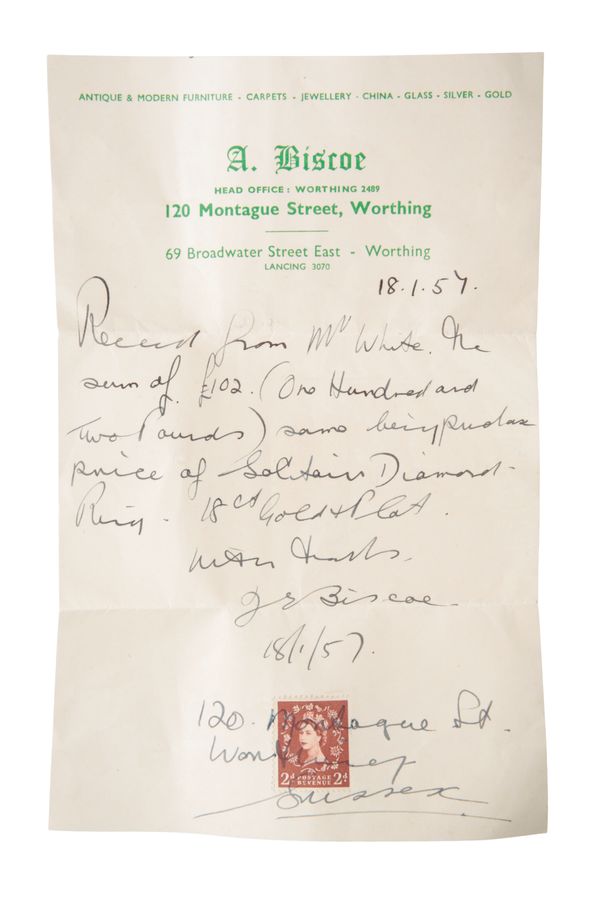 ANTIQUE & MODERN FURNITURE - CARPETS - JEWELLERY - CHINA - GLASS - SILVER - GOLD
A. Biscoe
HEAD OFFICE: WORTHING 2489
120 Montague Street, Worthing
69 Broadwater Street East - Worthing
LANCING 3070
18.1.57.
Received from Mr White. The
sum of £102. (One Hundred and
Two Pounds) same being purchase
price of Solitaire Diamond
Ring. 18ct Gold & Plat.
With Thanks.
Biscoe
18/1/57.
120. Montague St.
Worthing
Sussex
2d POSTAGE REVENUE 2d